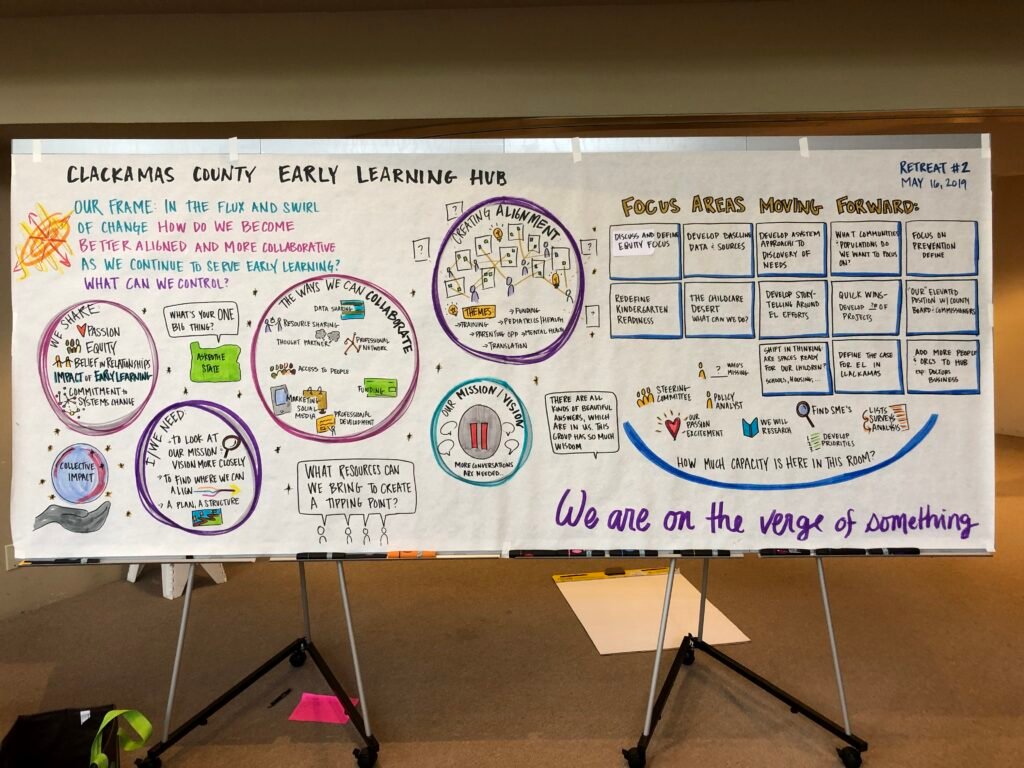 CLACKAMAS COUNTY EARLY LEARNING HUB
RETREAT #2
MAY 16, 2019
OUR FRAME: IN THE FLUX AND SWIRL
OF CHANGE HOW DO WE BECOME
BETTER ALIGNED AND MORE COLLABORATIVE
AS WE CONTINUE TO SERVE EARLY LEARNING?
WHAT CAN WE CONTROL?
WE SHARE
PASSION
EQUITY
BELIEF IN RELATIONSHIPS
IMPACT OF EARLY LEARNING
COMMITMENT TO
SYSTEMS CHANGE
WHAT'S YOUR ONE
BIG THING?
STATE
COLLECTIVE
IMPACT
I/WE NEED
TO LOOK AT
OUR MISSION/
VISION MORE CLOSELY
TO FIND WHERE WE CAN
ALIGN
A PLAN, A STRUCTURE
THE WAYS WE CAN COLLABORATE
DATA SHARING
RESOURCE SHARING
THOUGHT PARTNER
PROFESSIONAL
NETWORK
ACCESS TO PEOPLE
FUNDING
MARKETING
SOCIAL
MEDIA
PROFESSIONAL
DEVELOPMENT
WHAT RESOURCES CAN
WE BRING TO CREATE
A TIPPING POINT?
CREATING ALIGNMENT
?
?
?
?
THEMES
→ FUNDING
→ TRAINING
→ PEDIATRICS/HEALTH
→ PARENTING OPP
→ MENTAL HEALTH
→ TRANSLATION
OUR MISSION/VISION
MORE CONVERSATIONS
ARE NEEDED...
THERE ARE ALL
KINDS OF BEAUTIFUL
ANSWERS, WHICH
ARE IN US. THIS
GROUP HAS SO MUCH
WISDOM
FOCUS AREAS MOVING FORWARD:
DISCUSS AND DEFINE
EQUITY FOCUS
DEVELOP BASELINE
DATA + SOURCES
DEVELOP A SYSTEM
APPROACH TO
DISCOVERY OF
NEEDS
WHAT COMMUNITIES
+ POPULATIONS DO
WE WANT TO FOCUS
ON?
FOCUS ON
PREVENTION
DEFINE
REDEFINE
KINDERGARTEN
READINESS
THE CHILDCARE
DESERT
WHAT CAN WE DO?
DEVELOP STORY-
TELLING AROUND
EL EFFORTS
QUICK WINS-
DEVELOP
PROJECTS
"OUR" ELEVATED
POSITION W/ COUNTY
BOARD + COMMISSIONERS
SHIFT IN THINKING
ARE SPACES READY
FOR OUR CHILDREN?
SCHOOLS, HOUSING...
DEFINE THE CASE
FOR EL IN
CLACKAMAS
ADD MORE PEOPLE
+ ORGS TO HUB
DOCTORS
BUSINESS
?
WHO'S
MISSING
STEERING
COMMITTEE
POLICY
ANALYST
OUR
PASSION
EXCITEMENT
WE WILL
RESEARCH
FIND SME'S
DEVELOP
PRIORITIES
LISTS
SURVEYS
ANALYSIS
HOW MUCH CAPACITY IS HERE IN THIS ROOM?
We are on the verge of something